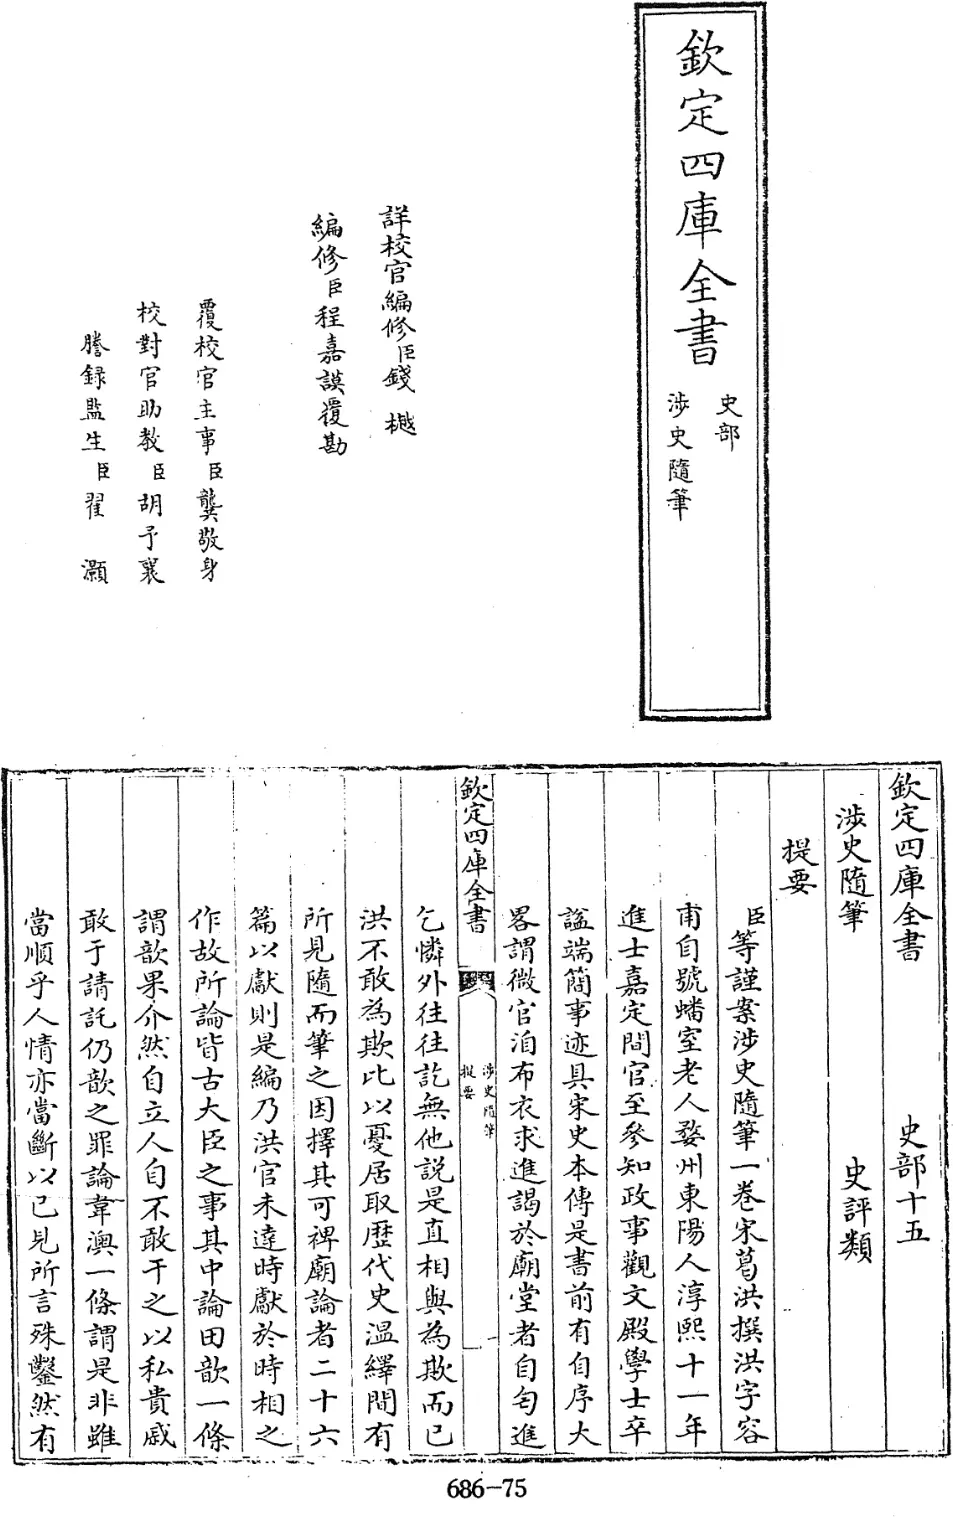 欽定四庫全書
史部
涉史隨筆
詳校官編修臣錢樾
編修臣程嘉謨覆勘
覆校官主事臣龔敬身
校對官助教臣胡予襄
謄錄監生臣翟灝
欽定四庫全書 史部十五
涉史隨筆 史評類
提要
臣等謹案涉史隨筆一卷宋葛洪撰洪字容
甫自號蟠室老人婺州東陽人淳熙十一年
進士嘉定間官至參知政事觀文殿學士卒
諡端簡事迹具宋史本傳是書前有自序大
畧謂微官洎布衣求進謁於廟堂者自匄進
欽定四庫全書
涉史隨筆
提要
一
乞憐外往往訖無他説是直相與為欺而已
洪不敢為欺比以憂居取歴代史温繹間有
所見隨而筆之因擇其可裨廟論者二十六
篇以獻則是編乃洪官未達時獻於時相之
作故所論皆古大臣之事其中論田歆一條
謂歆果介然自立人自不敢干之以私貴戚
敢于請託仍歆之罪論韋澳一條謂是非雖
當順乎人情亦當斷以已見所言殊鑿然有
686-75